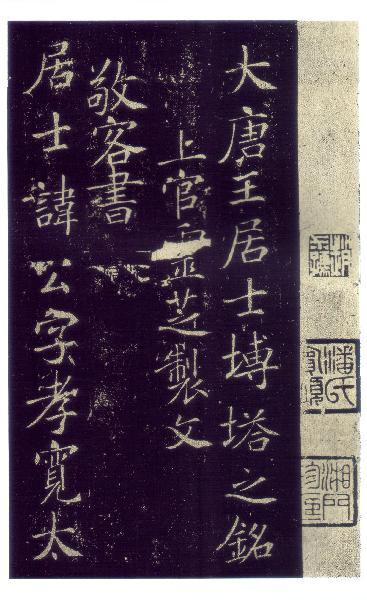 大唐王居士塼塔之銘
上官靈芝製文
敬客書
居士諱公字孝寬太
潘氏
湘門